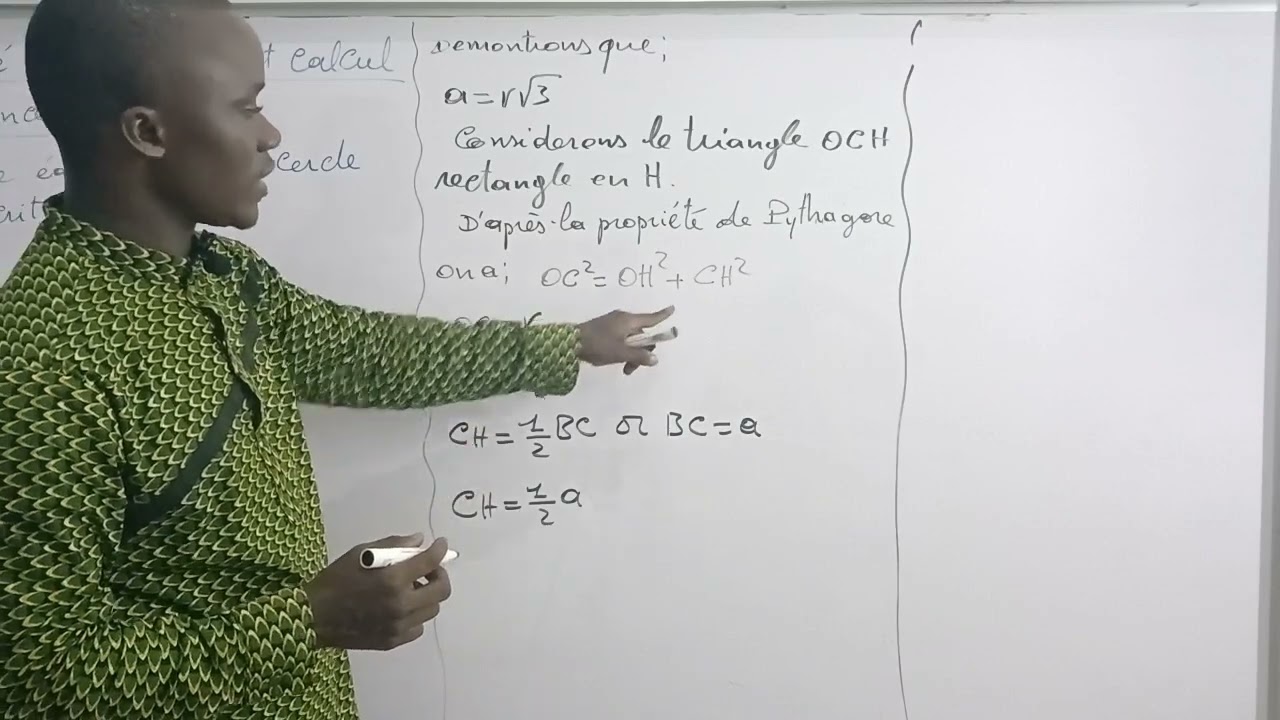 calcul
cercle
Demontrons que;
a = r√3
Considerons le triangle OCH
rectangle en H.
D'après la propriété de Pythagore
on a; OC² = OH² + CH²
CH = 1/2 BC or BC = a
CH = 1/2 a